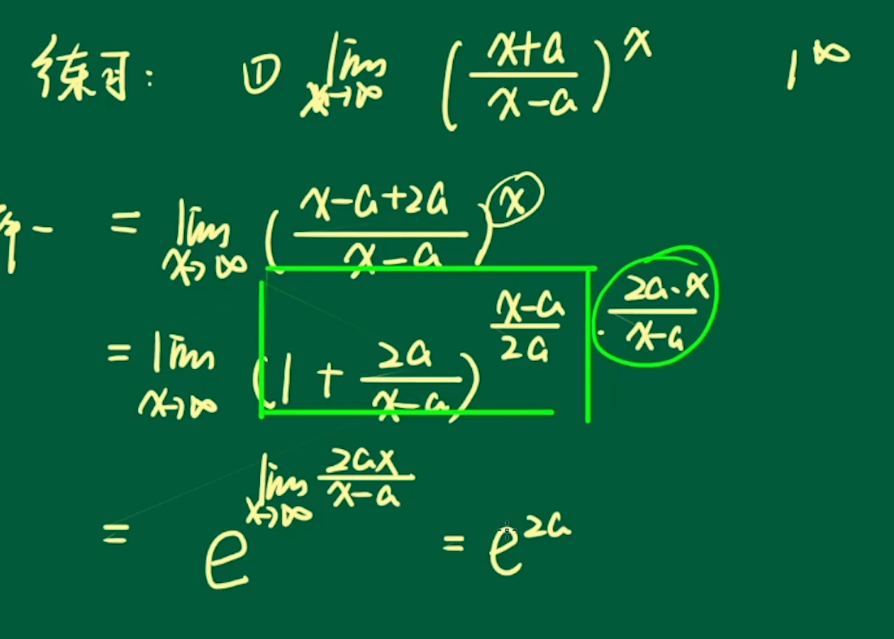 练习: ① lim x→∞ ((x+a)/(x-a))^x 1^∞
= lim x→∞ ((x-a+2a)/(x-a))^x
= lim x→∞ (1 + 2a/(x-a))^((x-a)/2a · 2a·x/(x-a))
= e^(lim x→∞ 2ax/(x-a)) = e^2a